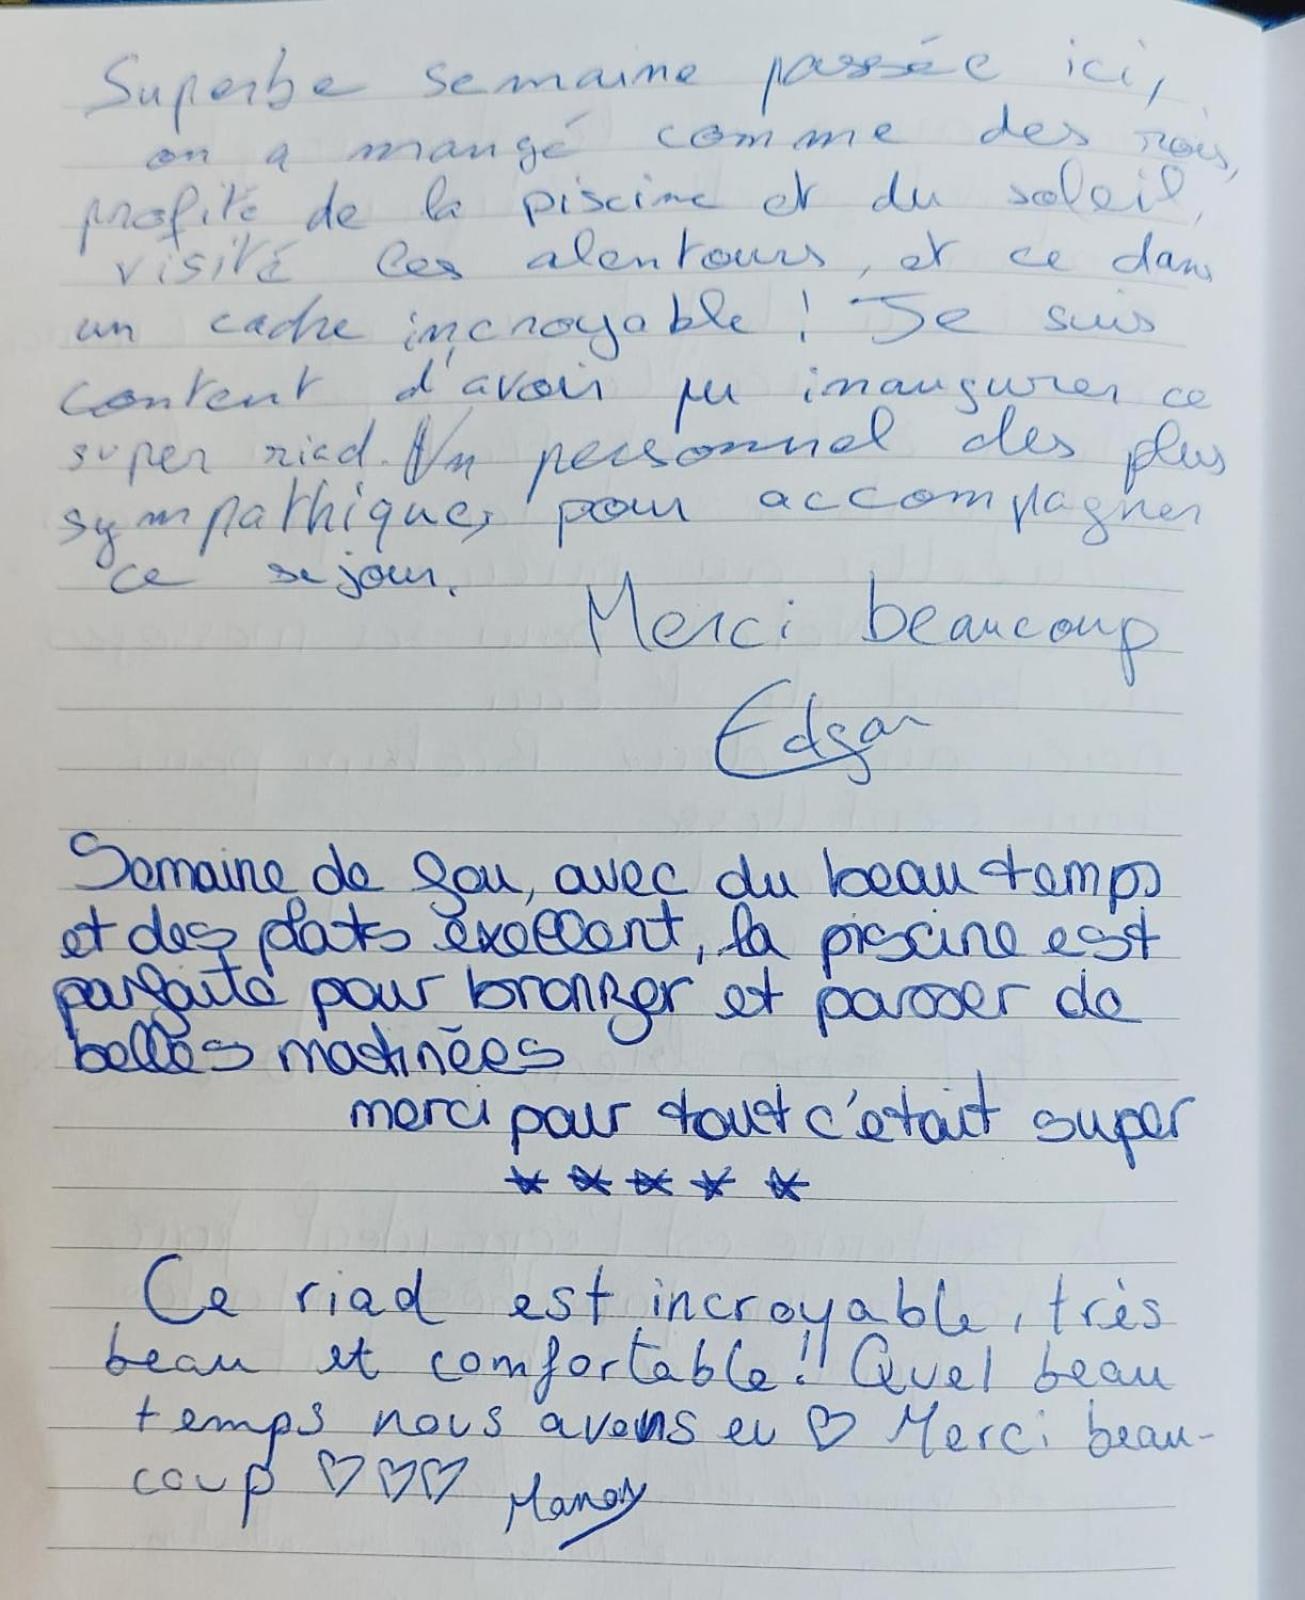 Superbe semaine passée ici,
on a mangé comme des rois,
profité de la piscine et du soleil,
visité les alentours, et ce dans
un cadre incroyable ! Je suis
content d'avoir pu inaugurer ce
super riad. Un personnel des plus
sympathique, pour accompagner
ce sejour.
Merci beaucoup
Edgar
Semaine de fou, avec du beau temps
et des plats éxellent, la piscine est
parfaite pour bronzer et passer de
belles matinées
merci pour tout c'était super
* * * * *
Ce riad est incroyable, très
beau et comfortable !! Quel beau
temps nous avons eu ♡ Merci beau-
coup ♡♡♡